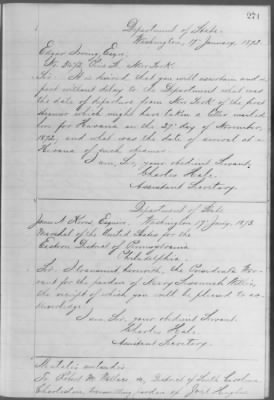 271
Department of State
Washington, 17 January, 1873.
Edgar Irving Esqre.
New York.
Sir: It is desired that you will ascertain and re-
port without delay to the Department what was
the date of departure from New York of the first
steamer which might have taken a letter mailed
here for Havana on the 29th day of November,
1872, and what was the date of arrival at
Havana of such steamer.
I am, Sir, your obedient Servant,
Charles Hale
Assistant Secretary.
Department of State
Washington 17 Jany. 1873
James N Kerns Esquire,
Marshal of the United States for the
Eastern District of Pennsylvania
Philadelphia.
Sir: I transmit herewith, the President's War-
rant for the pardon of Mary Savannah
the receipt of which you will be pleased to ac-
knowledge.
I am Sir, your obedient Servant.
Charles Hale.
Assistant Secretary.
Mutatis mutandis
To Robt M. Wallace District of South Carolina
Charleston, transmitting pardon of